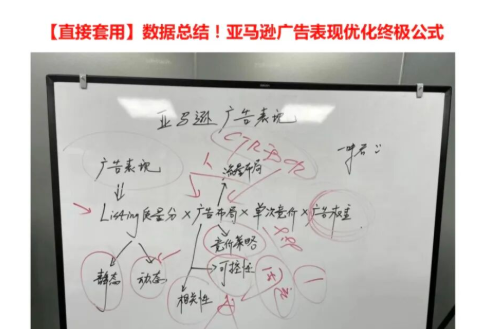 【直接套用】数据总结！亚马逊广告表现优化终极公式
亚马逊广告表现
CTR
广告表现
流量布局
Listing质量分 × 广告布局 × 单次竞价 × 广告权重
竞价策略
静态
动态
可控性
相关性